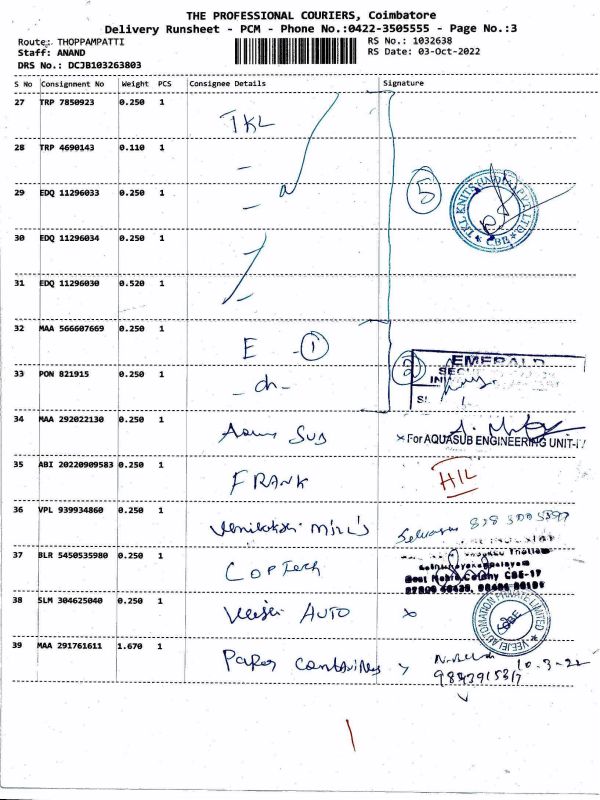 THE PROFESSIONAL COURIERS, Coimbatore
Delivery Runsheet - PCM - Phone No.:0422-3505555 - Page No.:3
Route: THOPPAMPATTI
RS No.: 1032638
Staff: ANAND
RS Date: 03-Oct-2022
DRS No.: DCJB103263803
S No Consignment No Weight PCS Consignee Details Signature
27 TRP 7850923 0.250 1 TKL
28 TRP 4690143 0.110 1
29 EDQ 11296033 0.250 1 5
TKL KNITS (INDIA) PVT LTD CBE
30 EDQ 11296034 0.250 1
31 EDQ 11296030 0.520 1
32 MAA 566607669 0.250 1 E - 1
EMERALD
33 PON 821915 0.250 1 - do - 2
34 MAA 292022130 0.250 1 Aqua Sub
For AQUASUB ENGINEERING UNIT-IV
35 ABI 20220909583 0.250 1 FRANK HIL
36 VPL 939934860 0.250 1 Mills
37 BLR 5450535980 0.250 1 COPTech
West Nehru Colony CBE-17
38 SLM 304625040 0.250 1 Veejei AUTO x
VEEJEI AUTOMATION PRIVATE LIMITED CBE
39 MAA 291761611 1.670 1 Paper Containers
10-3-22